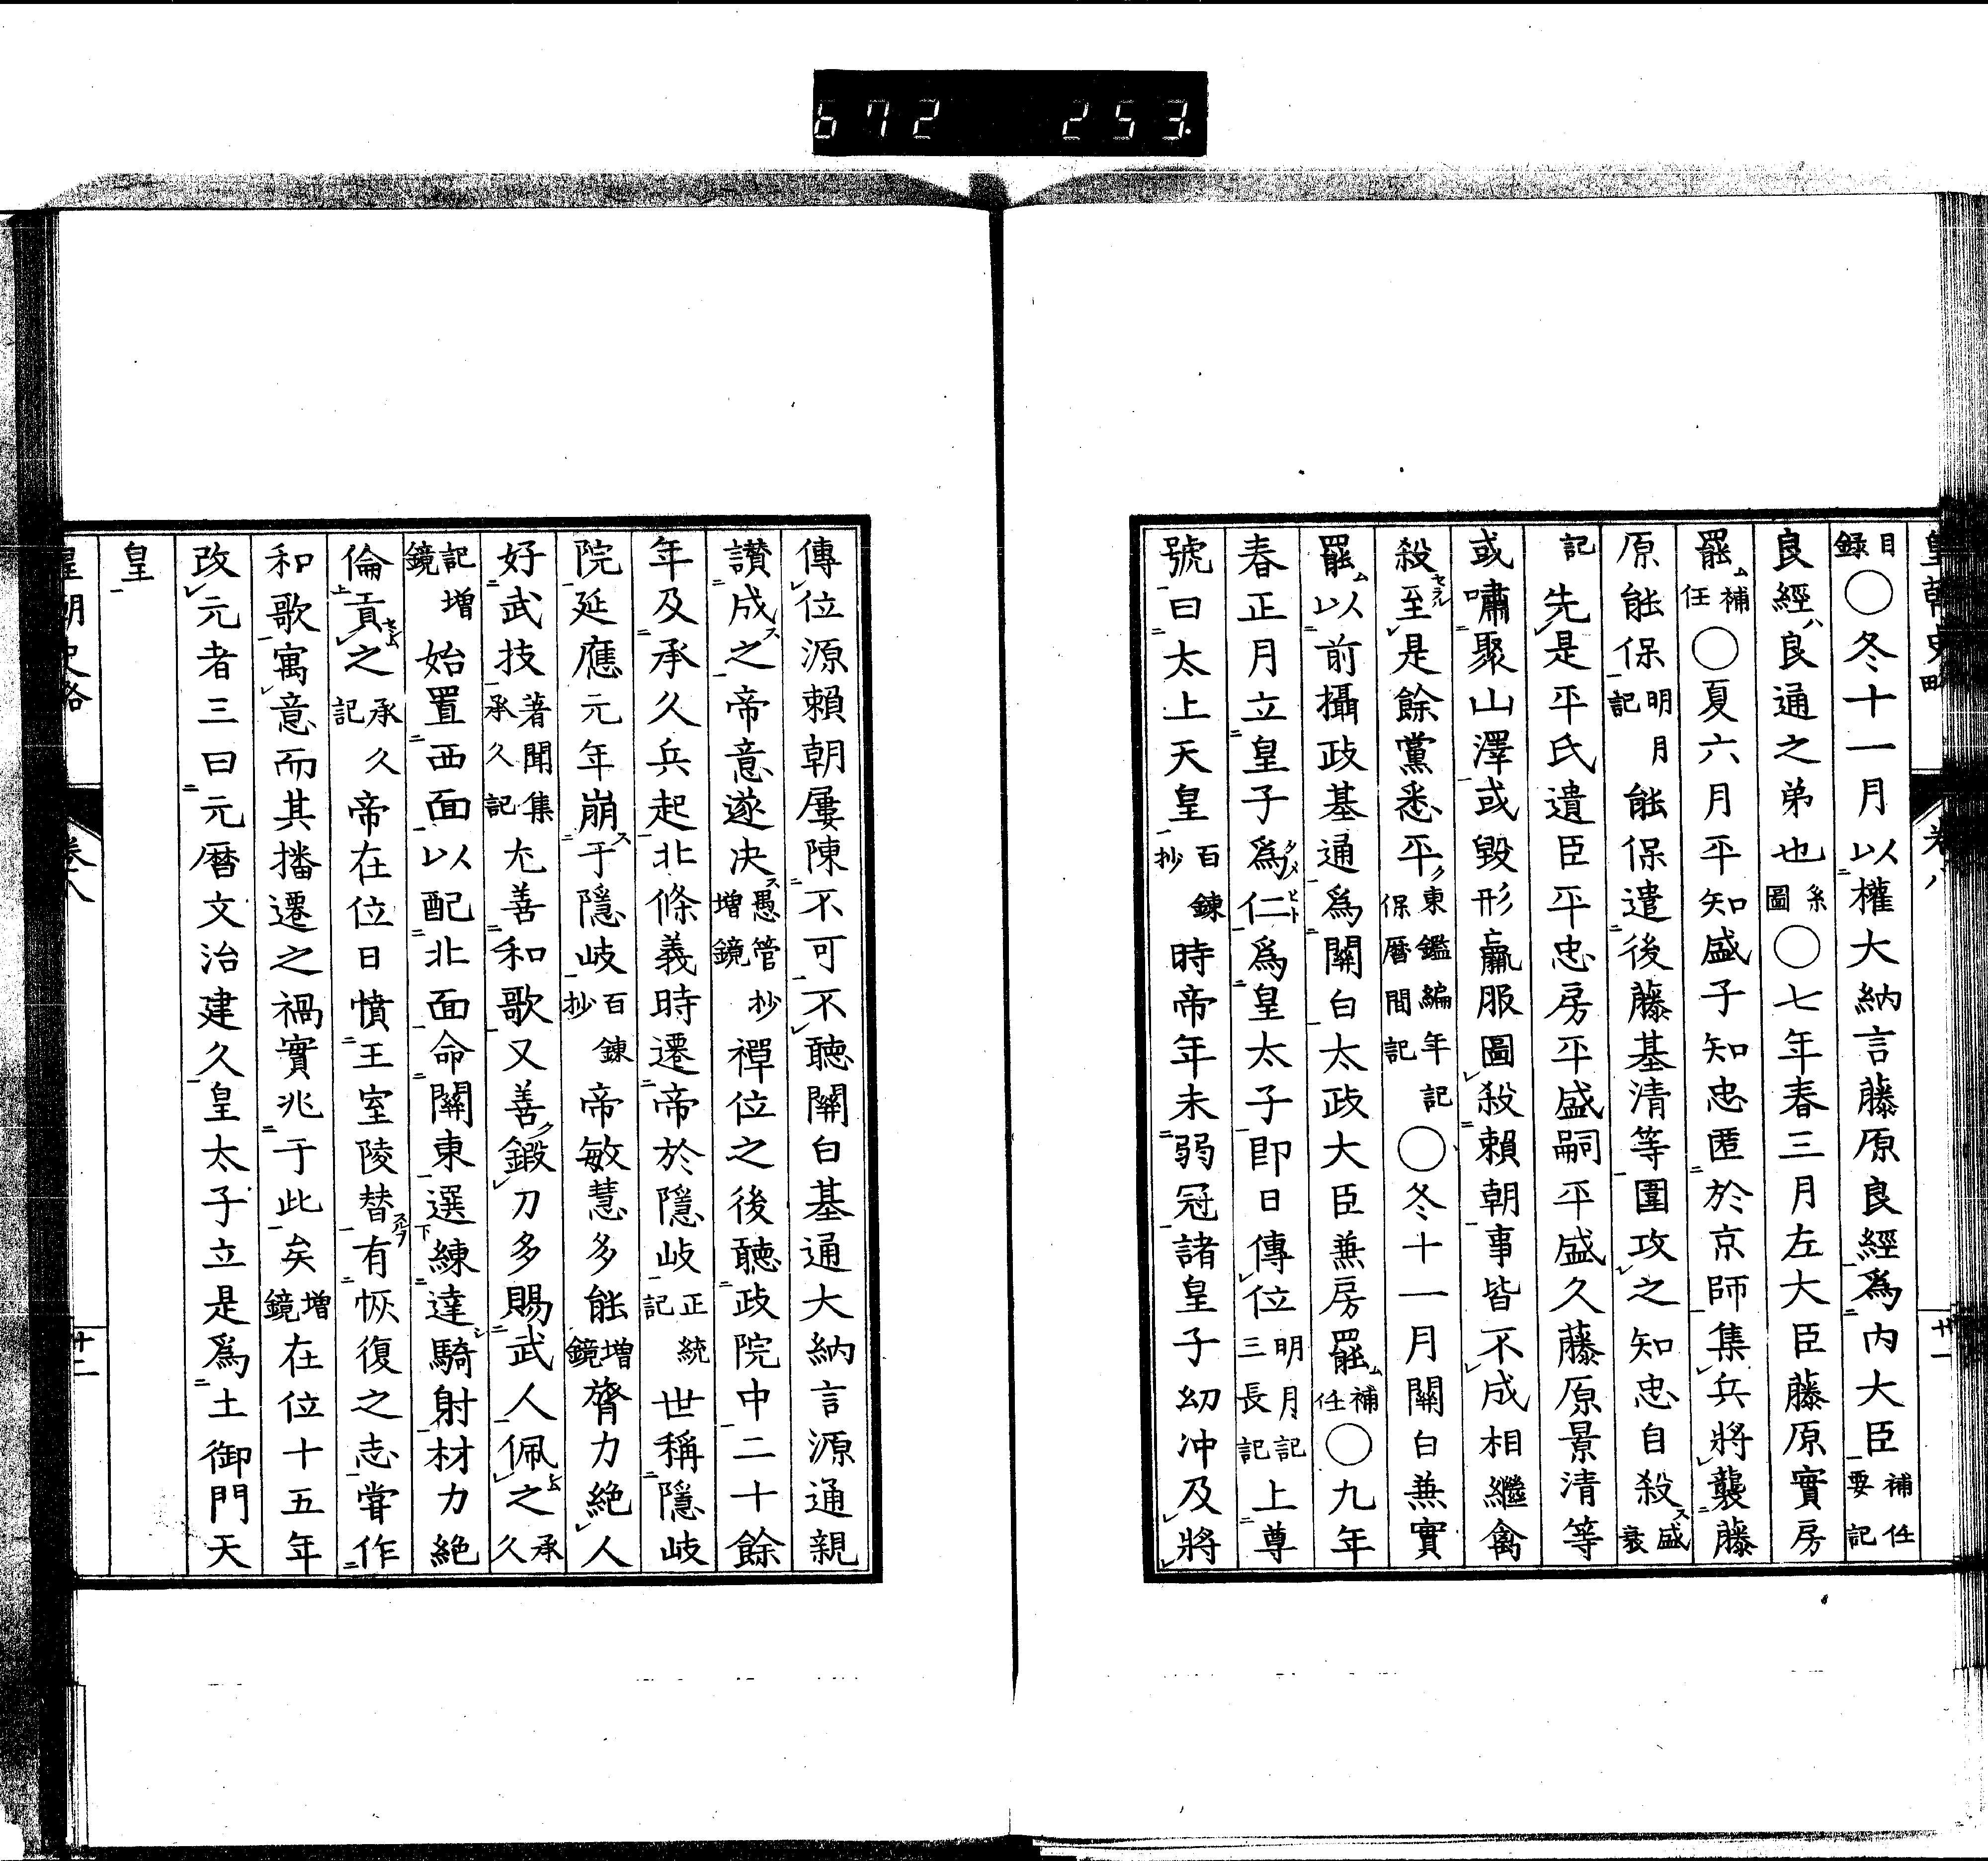 672 253
皇朝史略 卷八 廿一
目錄○冬十一月以權大納言藤原良經爲內大臣補任要記
良經ハ良通之弟也系圖○七年春三月左大臣藤原實房
罷ム補任○夏六月平知盛子知忠匿於京師集兵將襲藤
原能保明月記能保遣後藤基清等圍攻之知忠自殺ス盛衰
記先是平氏遺臣平忠房平盛嗣平盛久藤原景清等
或嘯聚山澤或毀形羸服圖殺賴朝事皆不成相繼禽
殺セラル至是餘黨悉平ク東鑑編年記保曆間記○冬十一月關白兼實
罷ム以前攝政基通爲關白太政大臣兼房罷ム補任○九年
春正月立皇子爲仁タメヒト爲皇太子卽日傳位明月記三長記上尊
號曰太上天皇百鍊抄時帝年未弱冠諸皇子幼冲及將
傳位源賴朝屢陳不可不聽關白基通大納言源通親
讃成ス之帝意遂决ス愚管抄增鏡禪位之後聽政院中二十餘
年及承久兵起北條義時遷帝於隱岐正統記世稱隱岐
院延應元年崩ス于隱岐百鍊抄帝敏慧多能增鏡膂力絕人
好武技著聞集承久記尤善和歌又善ク鍛刀多賜武人佩之承久
記增鏡始置西面以配北面命關東選練達シ騎射材力絕
倫貢セシム之承久記帝在位日憤王室陵替有恢復之志嘗作
和歌寓意而其播遷之禍實兆于此矣增鏡在位十五年
改元者三曰元曆文治建久皇太子立是爲土御門天
皇
皇朝史略 卷八 廿二